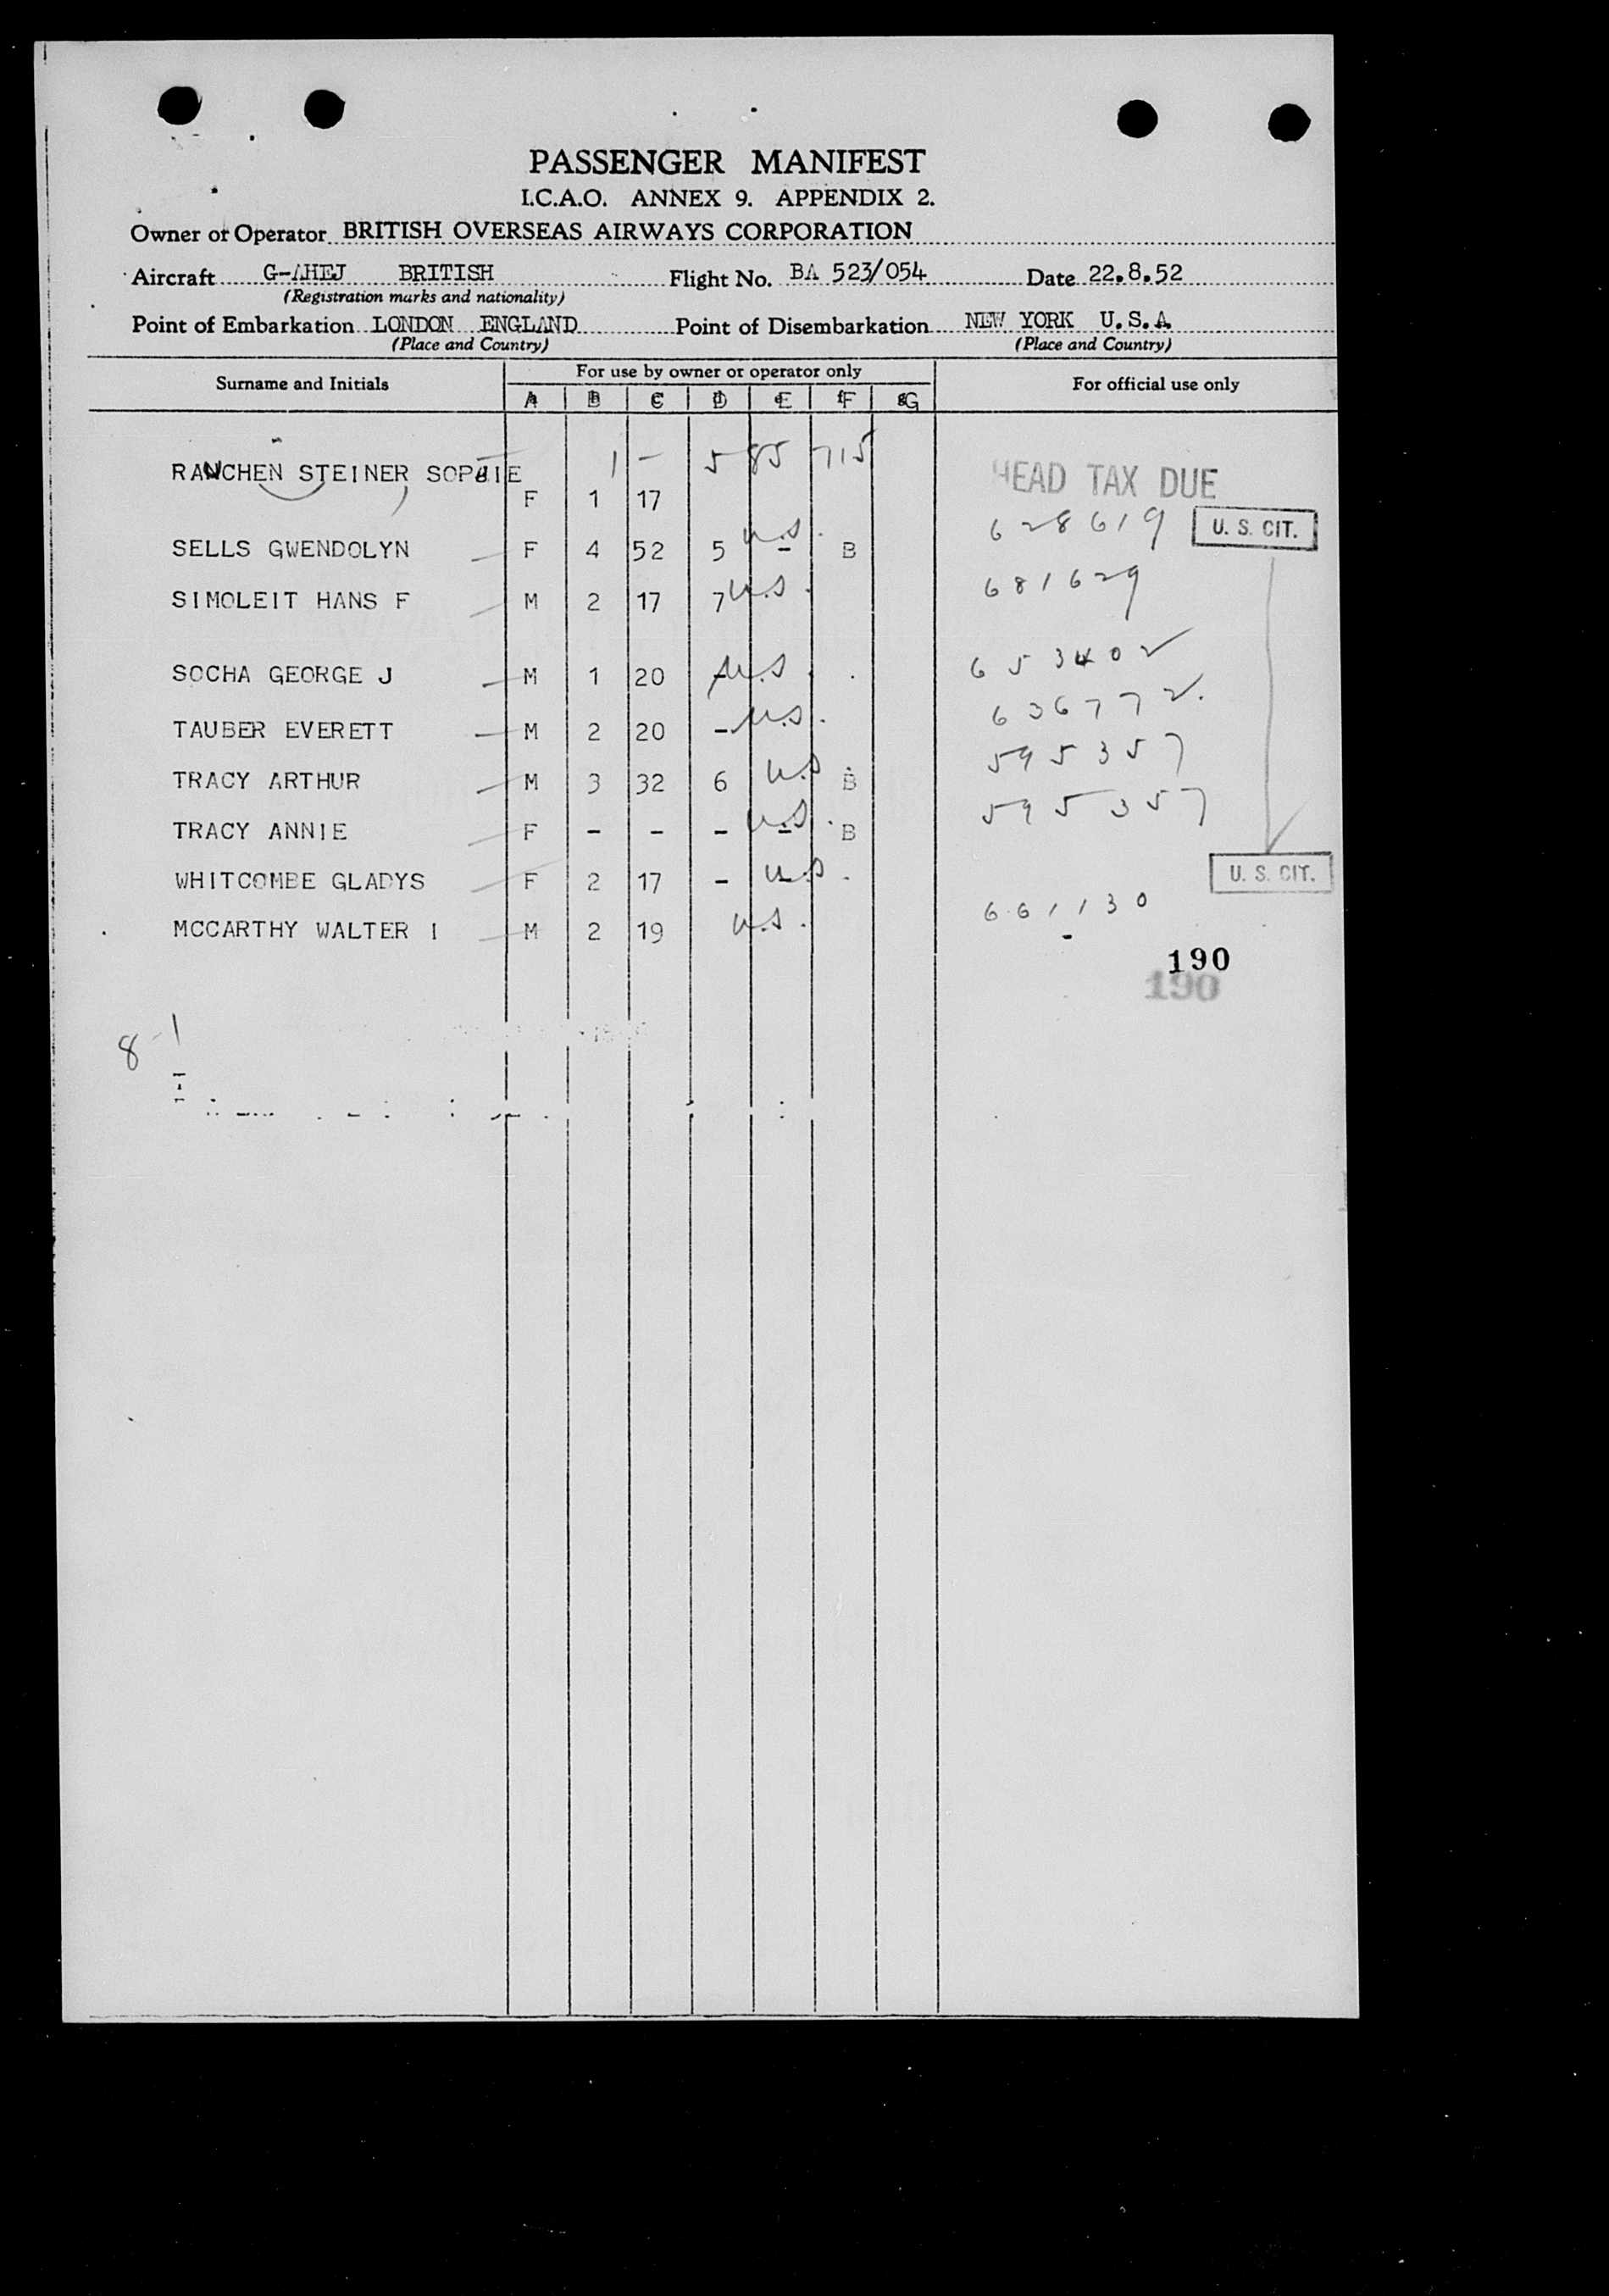 PASSENGER MANIFEST
I.C.A.O. ANNEX 9. APPENDIX 2.
Owner or Operator BRITISH OVERSEAS AIRWAYS CORPORATION
Aircraft G-AHEJ BRITISH Flight No. BA 523/054 Date 22.8.52
(Registration marks and nationality)
Point of Embarkation LONDON ENGLAND Point of Disembarkation NEW YORK U.S.A.
(Place and Country) (Place and Country)
Surname and Initials For use by owner or operator only For official use only
A B C D E F G
1 - 585 715
RAUCHEN STEINER SOPHIE HEAD TAX DUE
F 1 17
628619 U. S. CIT.
SELLS GWENDOLYN F 4 52 5 u.s. - B
681629
SIMOLEIT HANS F M 2 17 7 u.s.
653402
SOCHA GEORGE J M 1 20 - u.s.
636772
TAUBER EVERETT M 2 20 - u.s.
595357
TRACY ARTHUR M 3 32 6 u.s. B
595357
TRACY ANNIE F - - - u.s. - B
WHITCOMBE GLADYS F 2 17 - u.s. U. S. CIT.
661130
MCCARTHY WALTER I M 2 19 u.s.
190
190
8-1